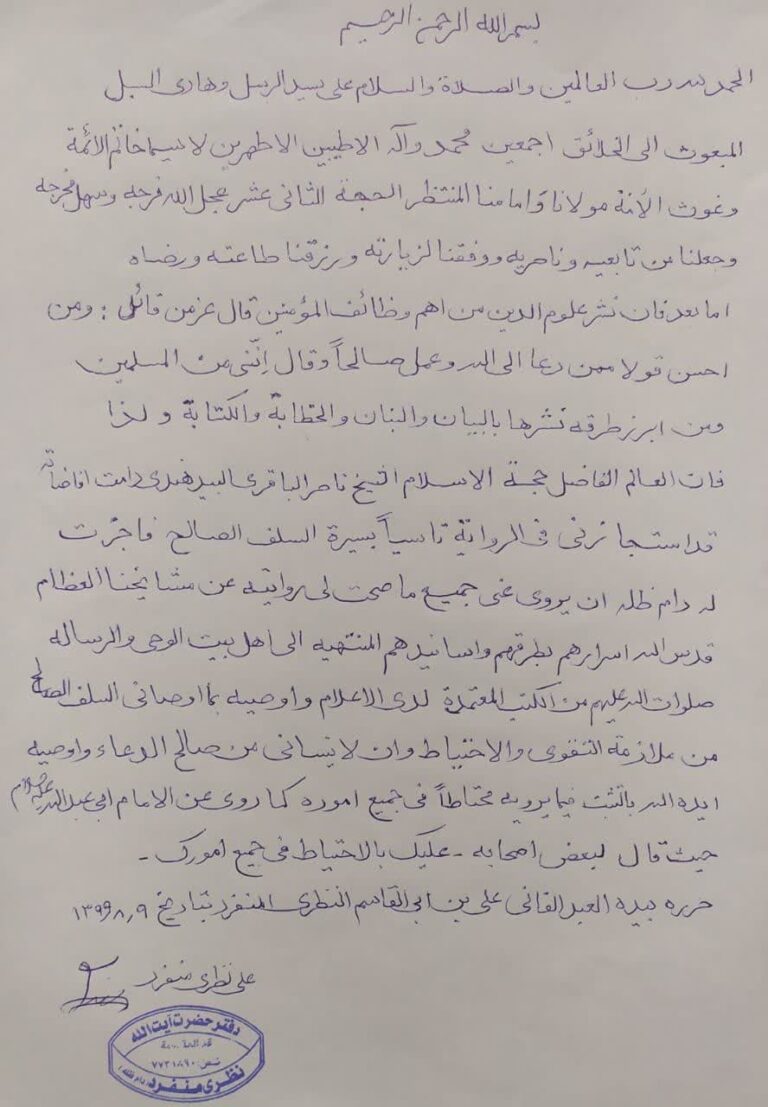 بسم الله الرحمن الرحیم
الحمد لله رب العالمین والصلاة والسلام علی سید الرسل وهادی السبل
المبعوث الی الخلائق اجمعین محمد وآله الاطیبین الاطهرین لاسیما خاتم الأئمة
وغوث الأمة مولانا وامامنا المنتظر الحجة الثانی عشر عجل الله فرجه وسهل مخرجه
وجعلنا من تابعیه وناصریه ووفقنا لزیارته ورزقنا طاعته ورضاه
اما بعد فان نشر علوم الدین من اهم وظائف المؤمنین قال عز من قائل : ومن
احسن قولا ممن دعا الی الله وعمل صالحاً وقال اِنّنی من المسلمین
ومن ابرز طرقه نشرها بالبیان والبنان والخطابة والکتابة ولذا
فان العالم الفاضل حجة الاسلام الشیخ ناصر الباقری البیدهندی دامت افاضاته
قد استجازنی فی الروایة تاسیاً بسیرة السلف الصالح فاجزت
له دام ظله ان یروی عنی جمیع ما صحت لی روایته عن مشایخنا العظام
قدس الله اسرارهم بطرقهم واسانیدهم المنتهیه الی اهل بیت الوحی والرساله
صلوات الله علیهم من الکتب المعتمدة لدی الاعلام واوصیه بما اوصانی السلف الصالح
من ملازمة التقوی والاحتیاط وان لا ینسانی من صالح الدعاء واوصیه
ایده الله بالتثبت فیما یرویه محتاطاً فی جمیع اموره کما روی عن الامام ابی عبدالله علیه السلام
حیث قال لبعض اصحابه - علیک بالاحتیاط فی جمیع امورک -
حرره بیده العبد الفانی علی بن ابی القاسم النظری المنفرد بتاریخ ۱۳۹۹٫۸٫۹
علی نظری منفرد
دفتر حضرت آیت الله
قم
تلفن: ۷۷۳۱۸۹۰
نظری منفرد (دام ظله)